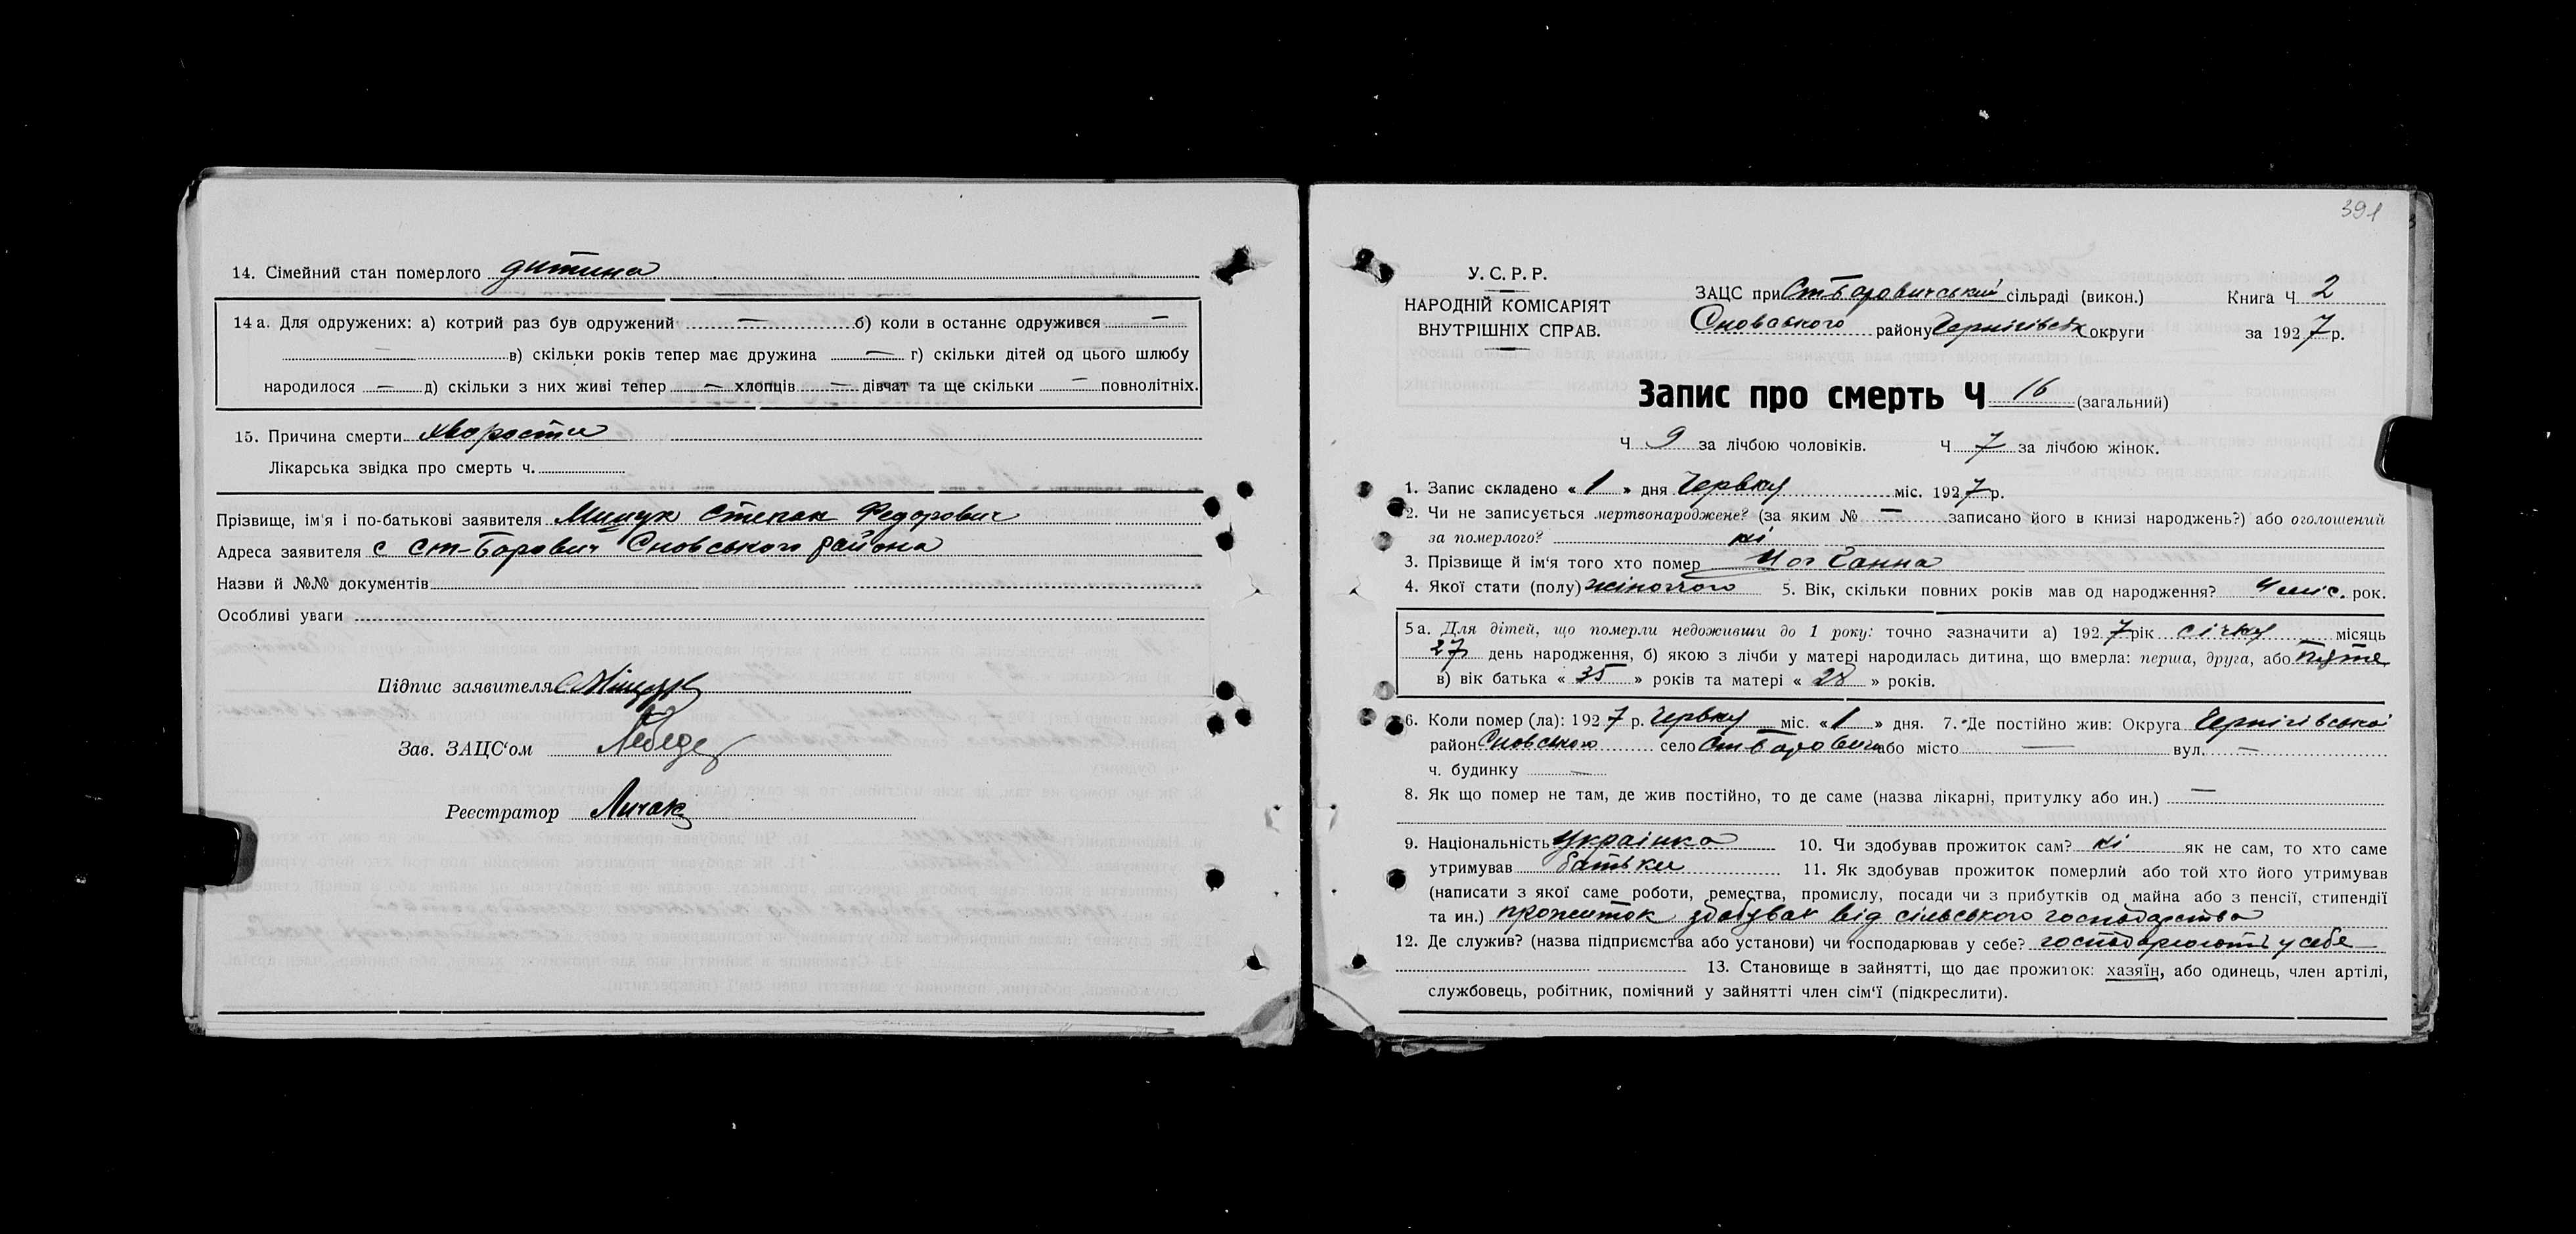 14. Сімейний стан померлого дитина
14 а. Для одружених: а) котрий раз був одружений — б) коли в останнє одружився —
— в) скільки років тепер має дружина — г) скільки дітей од цього шлюбу
народилося — д) скільки з них живі тепер — хлопців — дівчат та ще скільки — повнолітніх.
15. Причина смерти хворости
Лікарська звідка про смерть ч.
Прізвище, ім'я і по-батькові заявителя Мишук Степан Федорович
Адреса заявителя с Ст-Борович Сновського района
Назви й №№ документів
Особливі уваги
Підпис заявителя С Мішук
Зав. ЗАЦС'ом Лебеде
Реєстратор Личак
391
У. С. Р. Р.
НАРОДНІЙ КОМІСАРІЯТ
ВНУТРІШНІХ СПРАВ.
ЗАЦС при Ст Боровичський сільраді (викон.) Книга Ч 2
Сновського району Чернігівськ округи за 1927 р.
Запис про смерть Ч 16 (загальний)
Ч 9 за лічбою чоловіків. Ч 7 за лічбою жінок.
1. Запис складено « 1 » дня Червку міс. 1927 р.
2. Чи не записується мертвонароджене? (за яким № — записано його в книзі народжень?) або оголошений
за померлого? ні
3. Прізвище й ім'я того хто помер Ганна
4. Якої стати (полу) жіночого 5. Вік, скільки повних років мав од народження? 4 міс. рок.
5 а. Для дітей, що померли недоживши до 1 року: точно зазначити а) 1927 рік січку місяць
27 день народження, б) якою з лічби у матері народилась дитина, що вмерла: перша, друга, або пяте
в) вік батька « 35 » років та матері « 28 » років.
6. Коли помер (ла): 1927 р. Червку міс. « 1 » дня. 7. Де постійно жив: Округа Чернігівської
район Сновського село Ст Боровичи або місто — вул. —
ч. будинку —
8. Як що помер не там, де жив постійно, то де саме (назва лікарні, притулку або ин.) —
9. Національність українка 10. Чи здобував прожиток сам? ні як не сам, то хто саме
утримував батьки 11. Як здобував прожиток померлий або той хто його утримував
(написати з якої саме роботи, ремества, промислу, посади чи з прибутків од майна або з пенсії, стипендії
та ин.) прожиток здобував від сільського господарства
12. Де служив? (назва підприємства або установи) чи господарював у себе? господарюють у себе
13. Становище в зайнятті, що дає прожиток: хазяїн, або одинець, член артілі,
службовець, робітник, помічний у зайнятті член сім'ї (підкреслити).